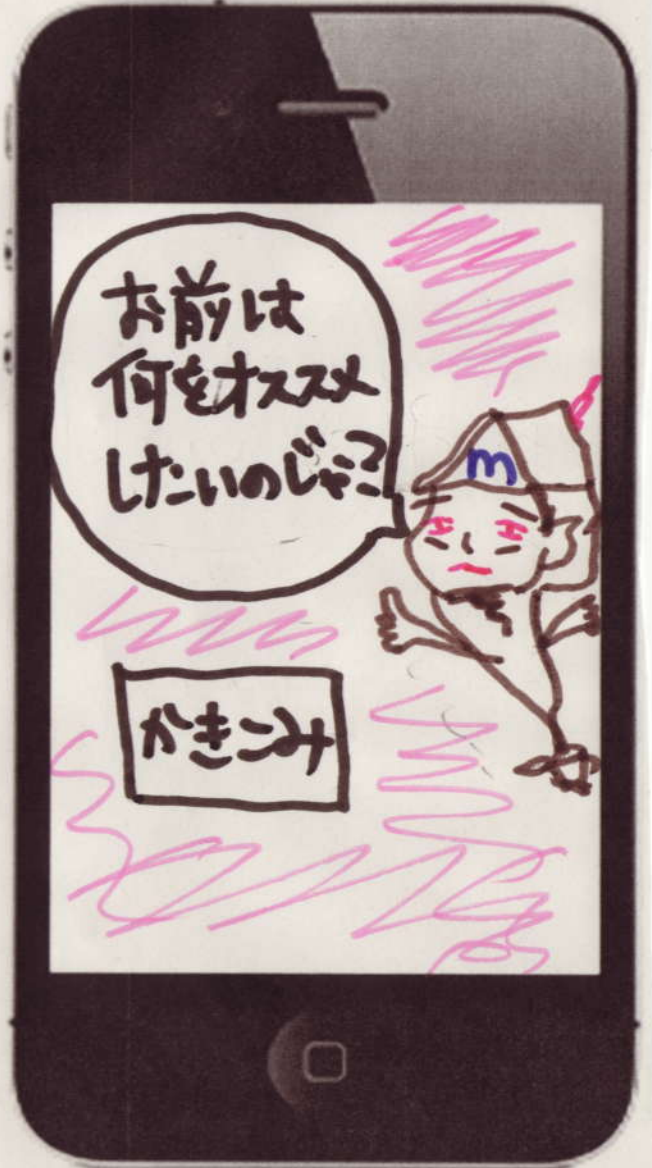 お前は
何をオススメ
したいのじゃ?
m
かきこみ